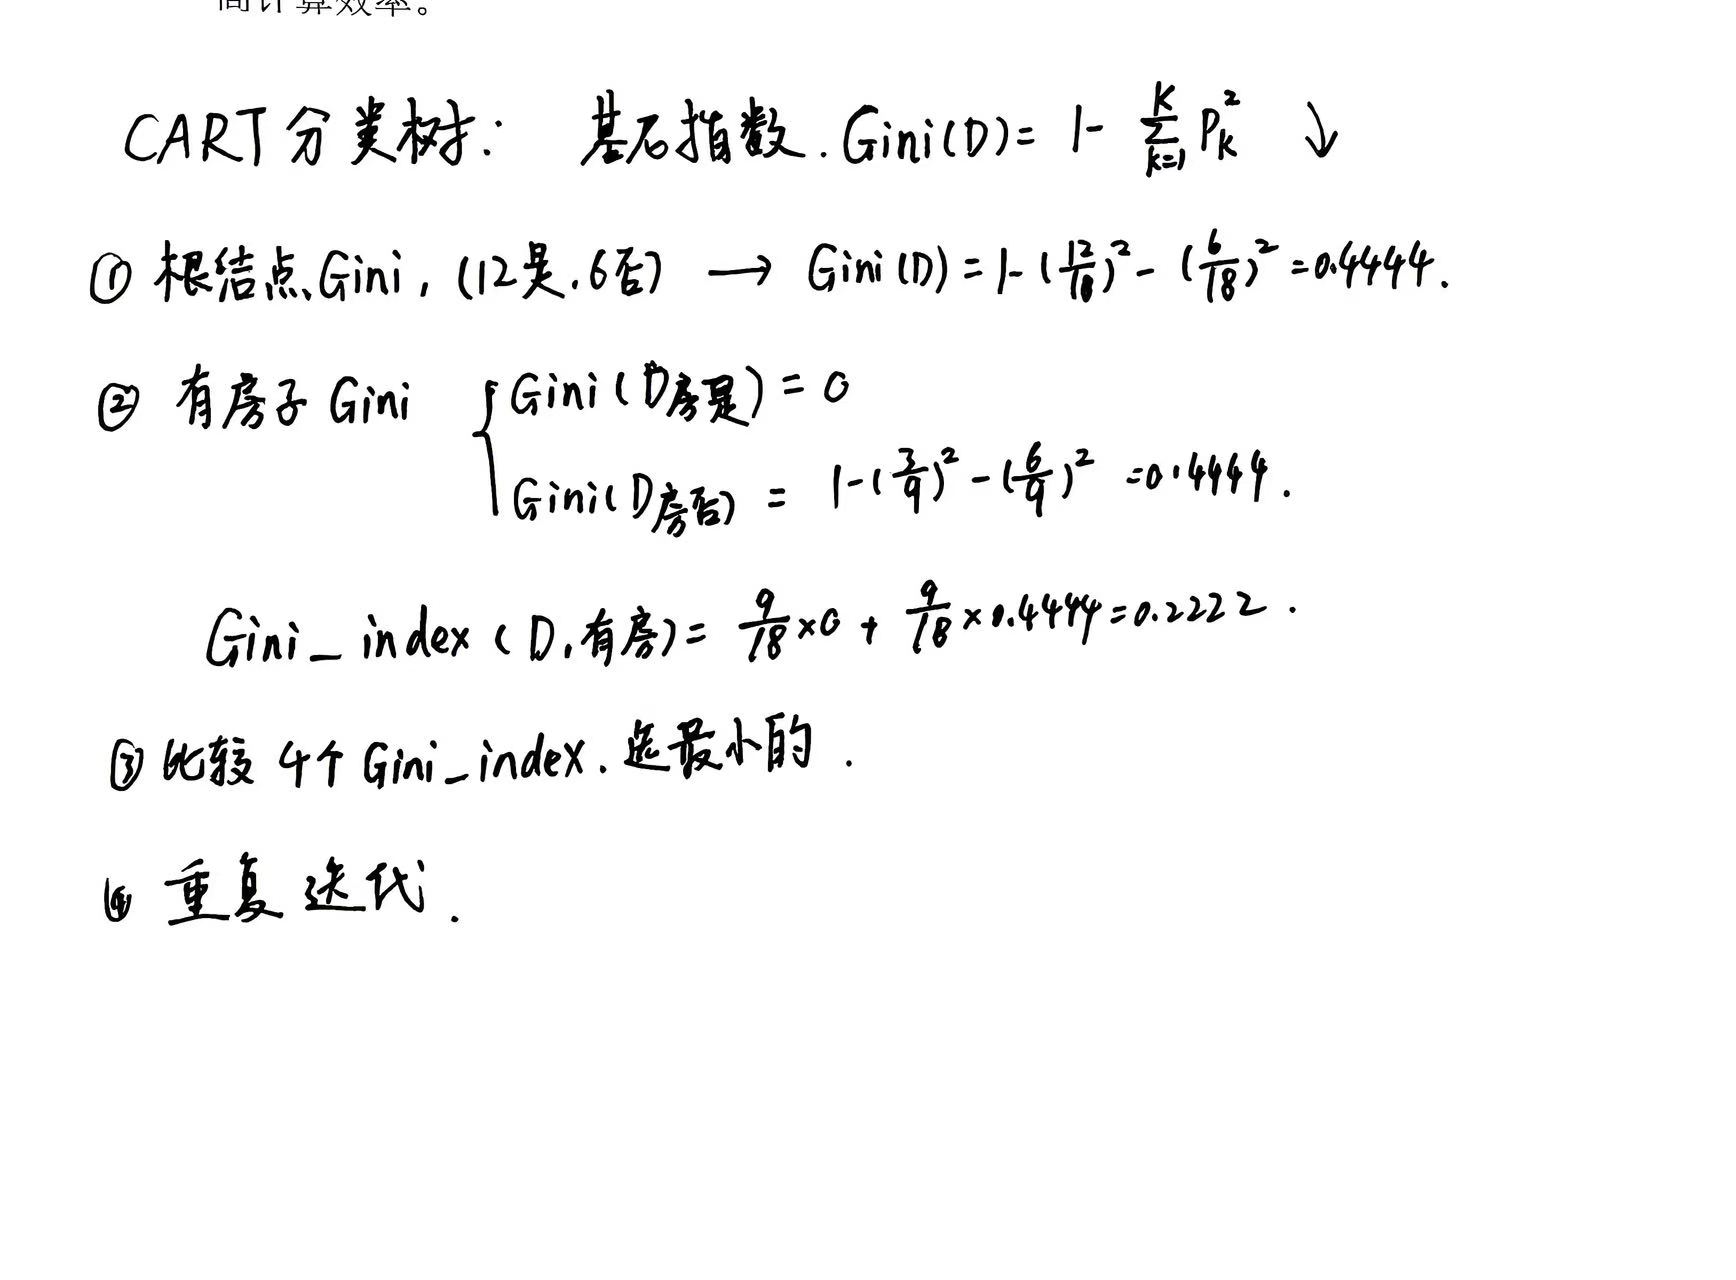 高计算效率。
CART分类树: 基石指数. Gini(D)= 1- Σ_{k=1}^{K} P_k^2 ↓
① 根结点Gini, (12是.6否) → Gini(D)=1-(12/18)^2-(6/18)^2=0.4444.
② 有房子 Gini { Gini(D房是)=0
Gini(D房否) = 1-(3/9)^2-(6/9)^2 =0.4444.
Gini_index(D,有房)= 9/18×0 + 9/18×0.4444=0.2222.
③ 比较 4个 Gini_index. 选最小的.
④ 重复 迭代.